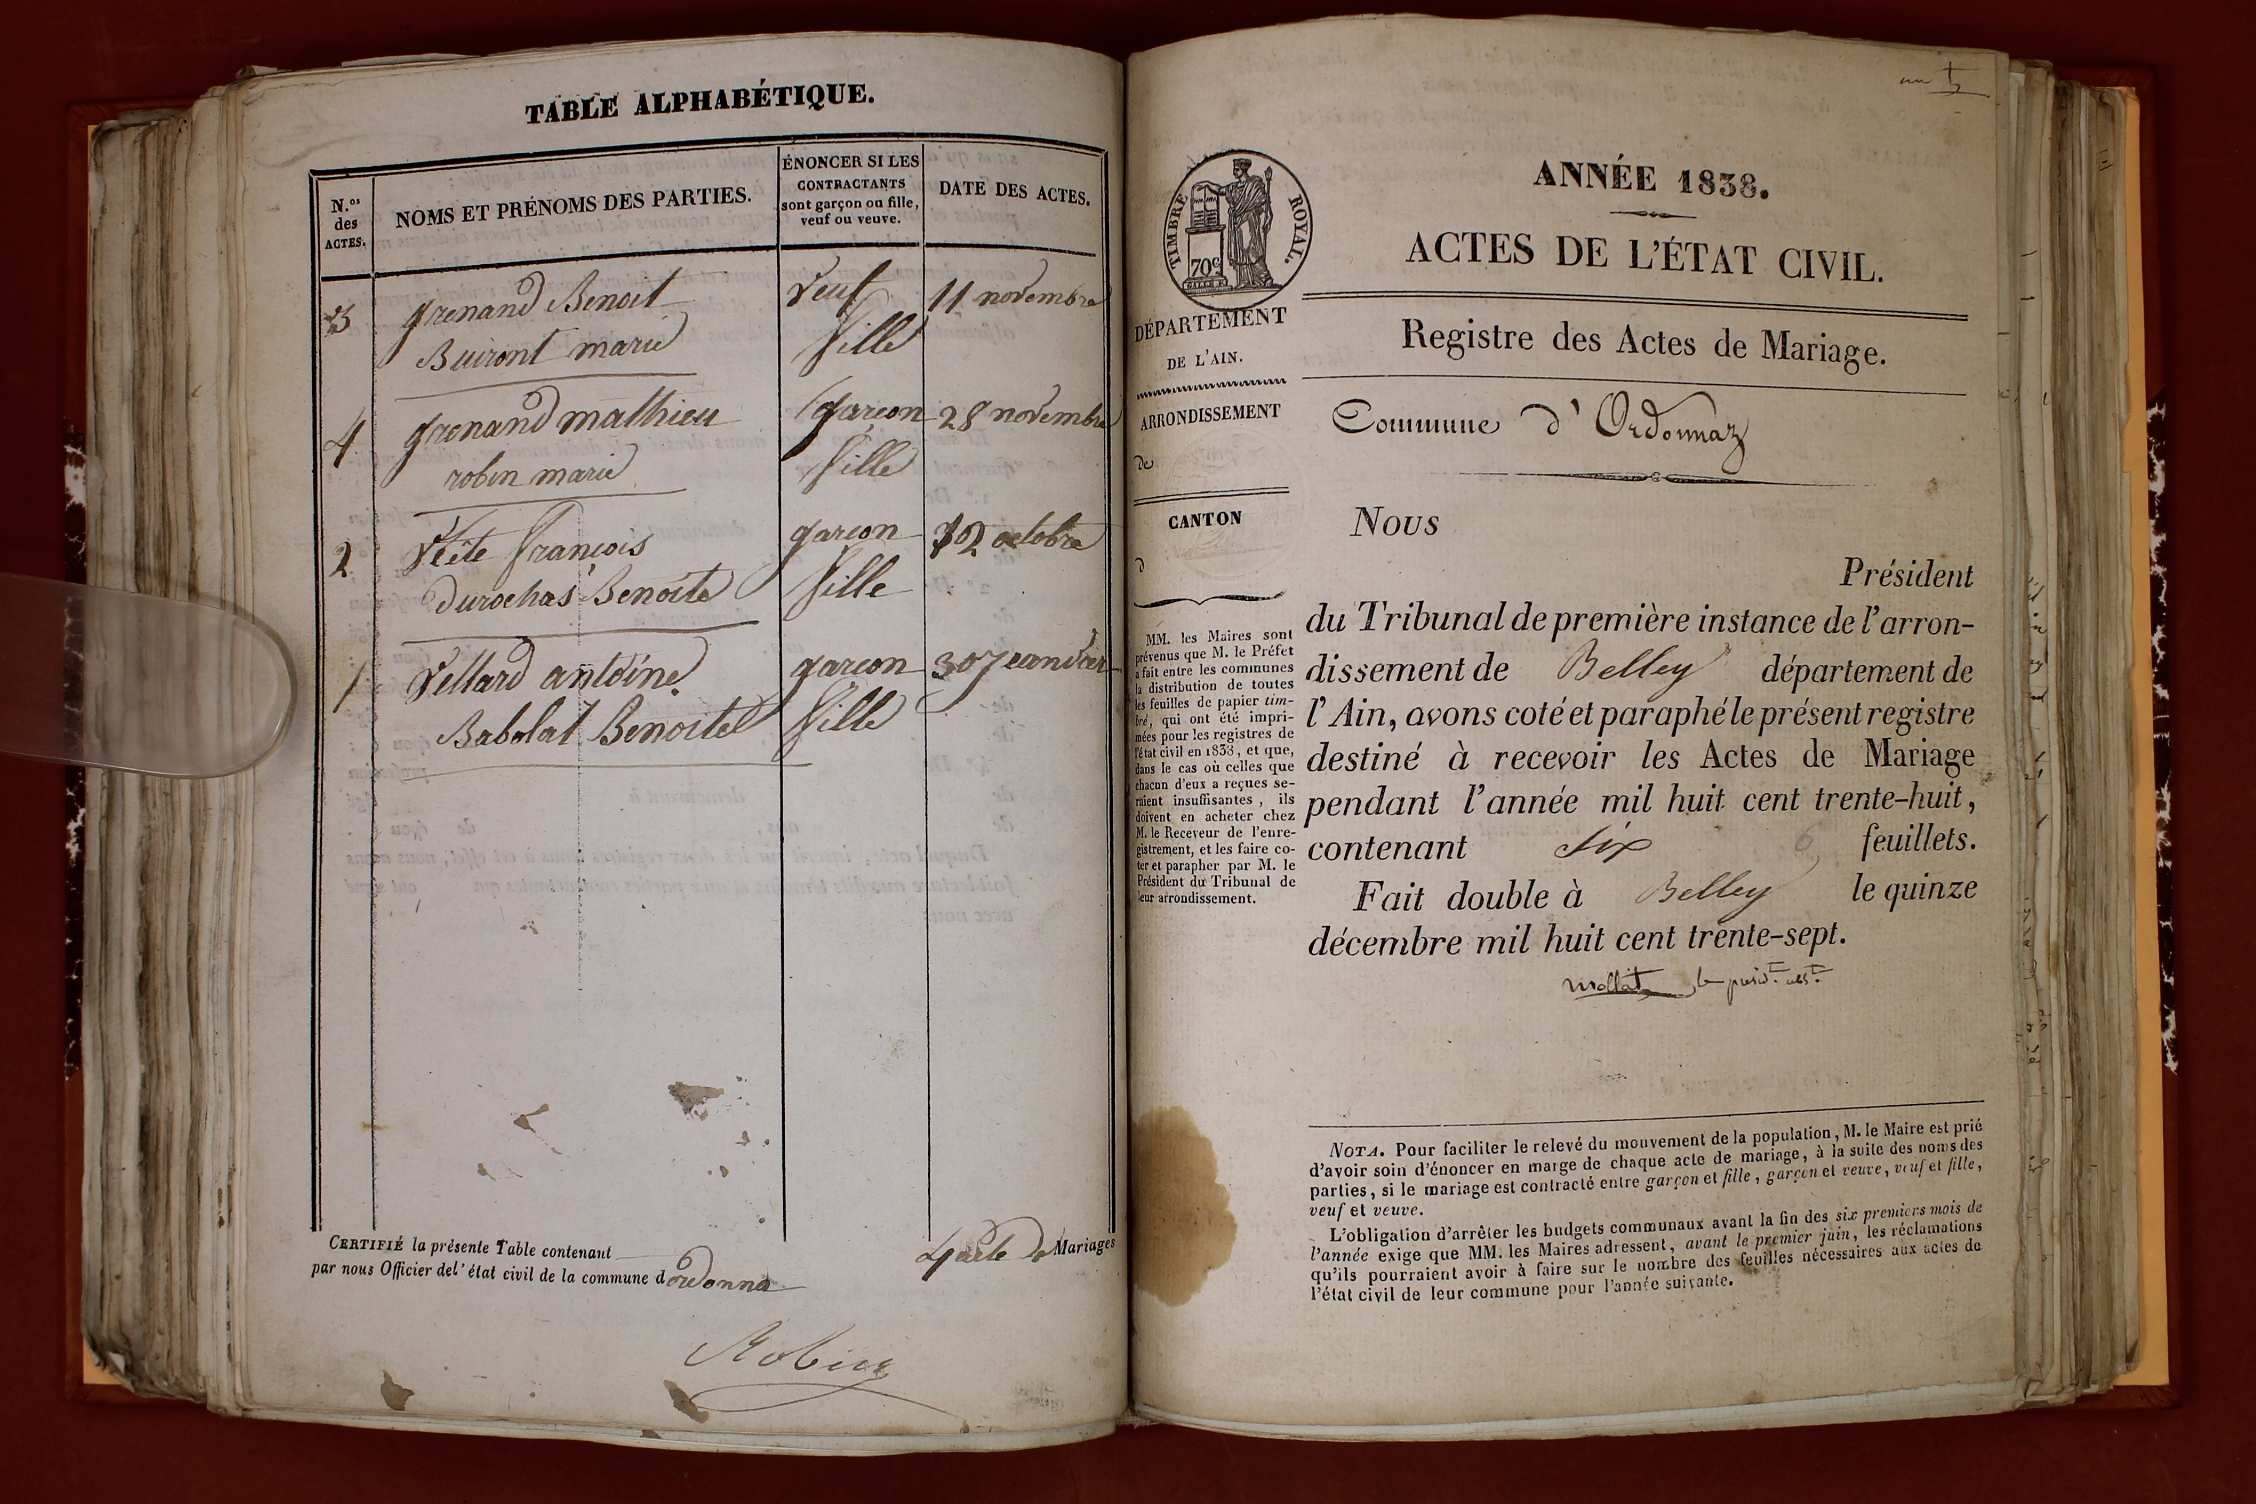 TABLE ALPHABÉTIQUE.
N.os des ACTES.
NOMS ET PRÉNOMS DES PARTIES.
ÉNONCER SI LES CONTRACTANTS sont garçon ou fille, veuf ou veuve.
DATE DES ACTES.
3 grenand Benoit veuf 11 novembre
Buiront marie fille
4 grenand mathieu garçon 28 novembre
robin marie fille
2 Tête françois garçon 12 octobre
durochas Benoite fille
1 Vellard antoine garçon 30 Jeanvier
Babolat Benoite fille
CERTIFIÉ la présente Table contenant 4 acte de Mariages
par nous Officier de l'état civil de la commune d ordonna
Robin
un
ANNÉE 1838.
ACTES DE L'ÉTAT CIVIL.
Registre des Actes de Mariage.
Commune d'Ordonnaz
TIMBRE ROYAL.
70c
DÉPARTEMENT
DE L'AIN.
ARRONDISSEMENT
de
CANTON
d
MM. les Maires sont
prévenus que M. le Préfet
a fait entre les communes
la distribution de toutes
les feuilles de papier tim-
bré, qui ont été impri-
mées pour les registres de
l'état civil en 1838, et que,
dans le cas où celles que
chacun d'eux a reçues se-
raient insuffisantes, ils
doivent en acheter chez
M. le Receveur de l'enre-
gistrement, et les faire co-
ter et parapher par M. le
Président du Tribunal de
leur arrondissement.
Nous
Président
du Tribunal de première instance de l'arron-
dissement de Belley département de
l'Ain, avons coté et paraphé le présent registre
destiné à recevoir les Actes de Mariage
pendant l'année mil huit cent trente-huit,
contenant six 6 feuillets.
Fait double à Belley le quinze
décembre mil huit cent trente-sept.
Mollet
NOTA. Pour faciliter le relevé du mouvement de la population, M. le Maire est prié
d'avoir soin d'énoncer en marge de chaque acte de mariage, à la suite des noms des
parties, si le mariage est contracté entre garçon et fille, garçon et veuve, veuf et fille,
veuf et veuve.
L'obligation d'arrêter les budgets communaux avant la fin des six premiers mois de
l'année exige que MM. les Maires adressent, avant le premier juin, les réclamations
qu'ils pourraient avoir à faire sur le nombre des feuilles nécessaires aux actes de
l'état civil de leur commune pour l'année suivante.